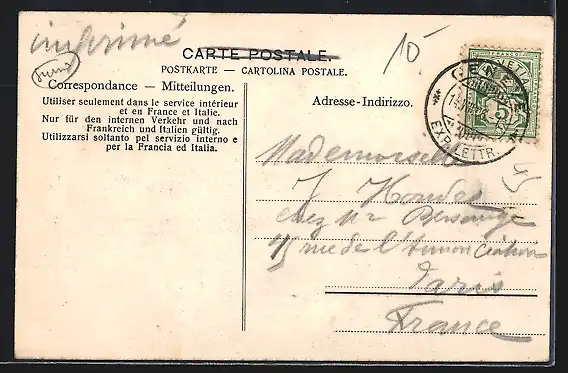 imprimé
CARTE POSTALE.
POSTKARTE — CARTOLINA POSTALE.
Correspondance — Mitteilungen.
Utiliser seulement dans le service intérieur
et en France et Italie.
Nur für den internen Verkehr und nach
Frankreich und Italien gültig.
Utilizzarsi soltanto pel servizio interno e
per la Francia ed Italia.
10
HELVETIA
GENÈVE
EXP. LETTR.
5
Adresse-Indirizzo.
Mademoiselle
J
chez Mr
rue de l'Annonciation
Paris
France